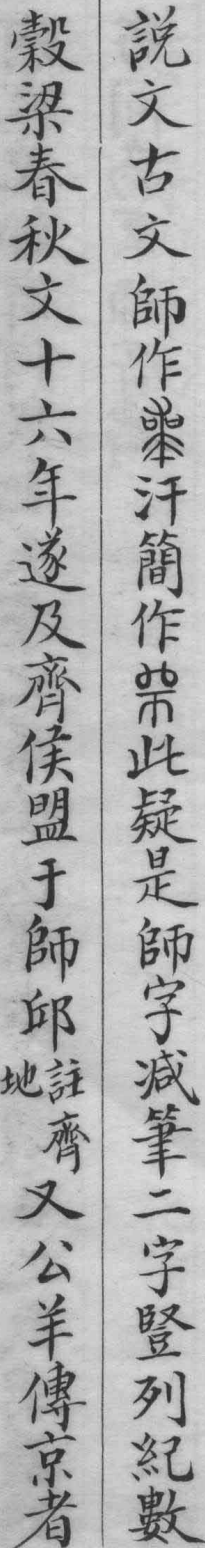 説文古文師作汗簡作此疑是師字減筆二字豎列紀數
穀梁春秋文十六年遂及齊侯盟于師邱註齊地又公羊傳京者